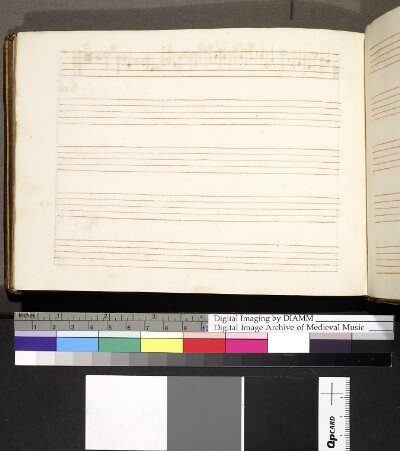 Inches 1 2 3 4
1 2 3 4 5 6 7 8 9 10
Digital Imaging by DIAMM
Digital Image Archive of Medieval Music
QPCARD